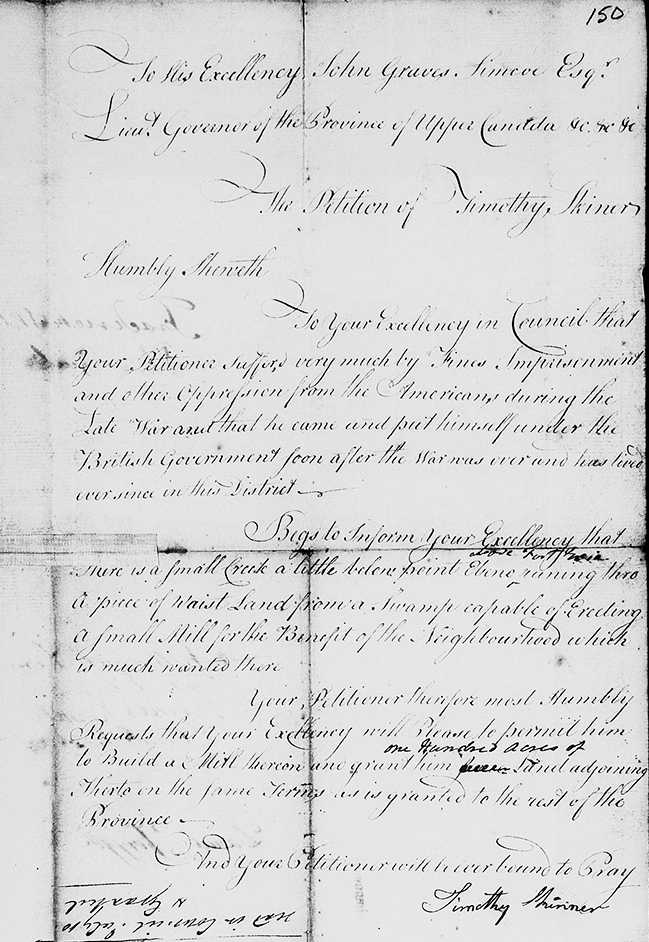 150
To His Excellency John Graves Simcoe Esqr
Lieut Governor of the Province of Upper Candda &c. &c &c
The Petition of Timothy Skiner
Humbly Sheweth
To Your Excellency in Council that
Your Petitioner Sufferd very much by Fines Imprisonment
and other Oppression from the Americans during the
Late War and that he came and put himself under the
British Government soon after the War was over and has lived
ever since in this District
Begs to Inform Your Excellency that
There is a Small Creek a little below point Ebeno runing thro
A piece of Waist Land from a Swamp capable of Erecting
a Small Mill for the Benefit of the Neighbourhood which
is much wanted there
Your Petitioner therefore most Humbly
Requests that Your Excellency will Please to permit him
one Hundred acres of
to Build a Mill thereon and grant him Land adjoining
therto on the same Terms as is granted to the rest of the
Province
And Your Petitioner will be ever bound to Pray
Timothy Skinner